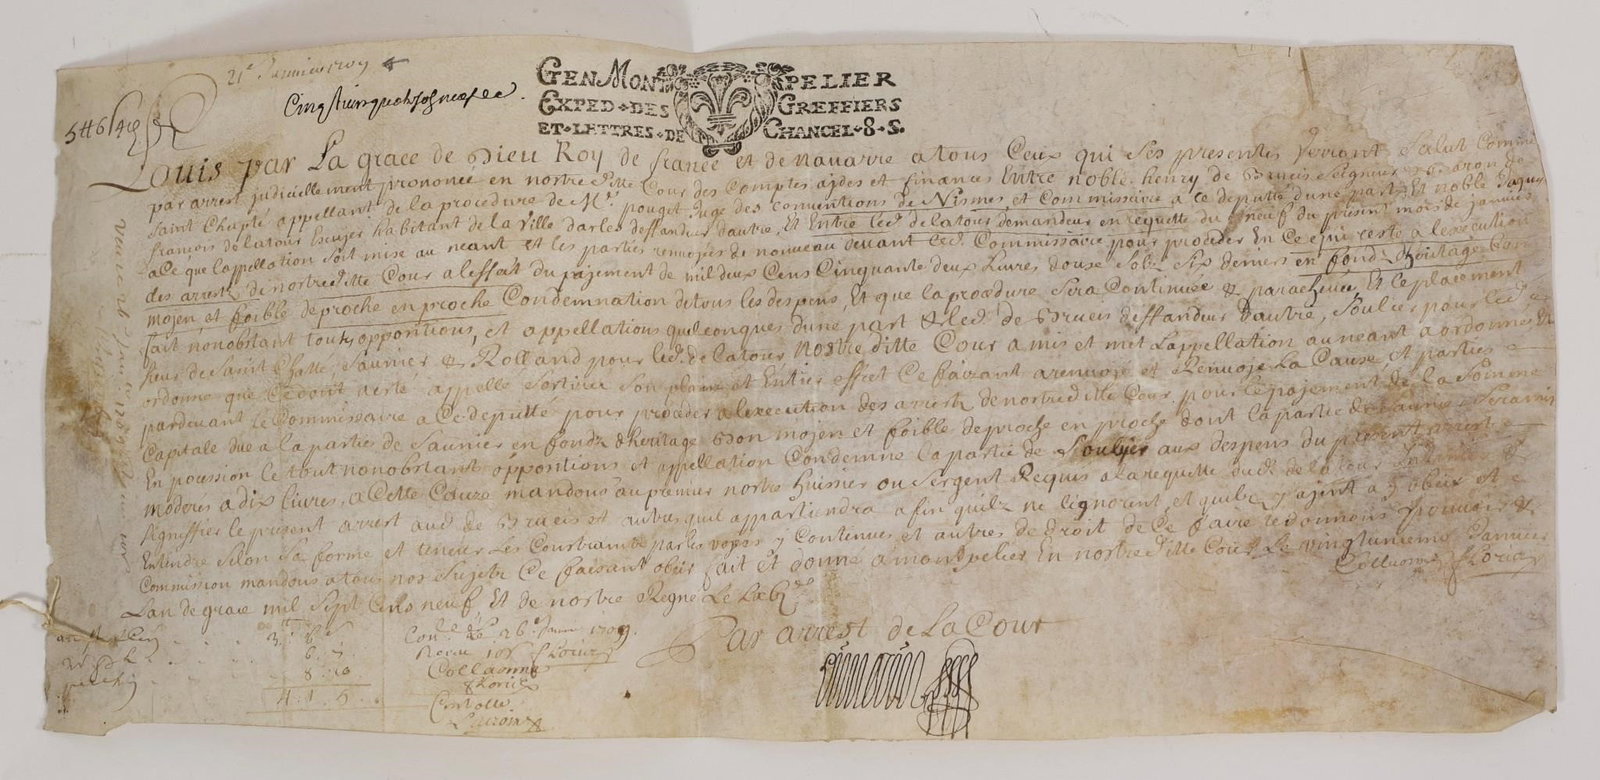 21e Januier 1709
GEN MONT PELIER
EXPED DES GREFFIERS
ET LETTRES DE CHANCEL 8 S.
Louis par La grace de Dieu Roy de france et de nauarre a tous Ceux qui Ses presentes Verront Salut Comme
par arrest judiciellement prononcé en nostre ditte Cour des Comptes aides et finances Entre noble henry de Brueis Seigneur & Baron de
Saint Chapté appellant de la procedure de Mr. pouget Juge des Conuentions de Nismes et Commissaire a ce deputté dune part Et noble Jaques
françois de latour Escuyer habitant de la Ville darles deffandeur dautre, Et Entre led. de latour demandeur en requette du neuf du present mois de januier
a Ce que lappellation soit mise au neant et les parties renuoyés de nouueau deuant led. Commissaire pour proceder En Ce qui reste a lexecution
des arrests de nostre ditte Cour a leffait du payement de mil deux Cens Cinquante deux Liures douse Solz Six deniers en fondz dheritage bon
moyen et foible de proche en proche Condemnation de tous les despens, Et que la procedure Sera Continuée & paracheuée Et le placement
fait nonobstant toutes oppositions, et appellations quelconques dune part & led. de Brueis deffandeur dautre, Soulier pour led.
Sieur de Saint Chatte, Saunier & Rolland pour led. de latour Nostre ditte Cour a mis et met Lappellation au neant a ordonné Et
ordonne que Ce dont a esté appellé Sortira Son plain et Entier effet Ce faizant a renuoyé et Renuoye La Cause et parties
pardeuant le Commissaire a Ce deputté pour proceder a lexecution des arrests de nostre ditte Cour, pour le payement de la Somme
Capitale due a la partie de Saunier en fondz dheritage Bon moyen et foible de proche en proche dont la partie de Saunier Sera mis
En possion le tout nonobstant oppositions et appellation Condemne la partie de Soulyer aux despens du present arrest
moderés a dix liures, a Cette Cauze mandons au premier nostre huissier ou Sergent Requis a la requette dud. de latour Intimer &
Signiffier le present arrest aud. de Brueis et autres quil appartiendra a fin quilz ne lignorent, et quilz y ajent a obeir et
Entendre Selon Sa forme et teneur Les Constraindre par les voyes y Contenues et autres de droit de Ce faire te donnons Pouuoir &
Commission mandons a tous nos Sujets Ce faisant obeir fait et donné a montpelier En nostre ditte Cour Le vingtunieme Januier
Lan de grace mil Sept Cens neuf Et de nostre Regne Le
Collaonné
Par arrest de La Cour
26e Janer 1709.
Collaonné
Controllé
4. 1. 5